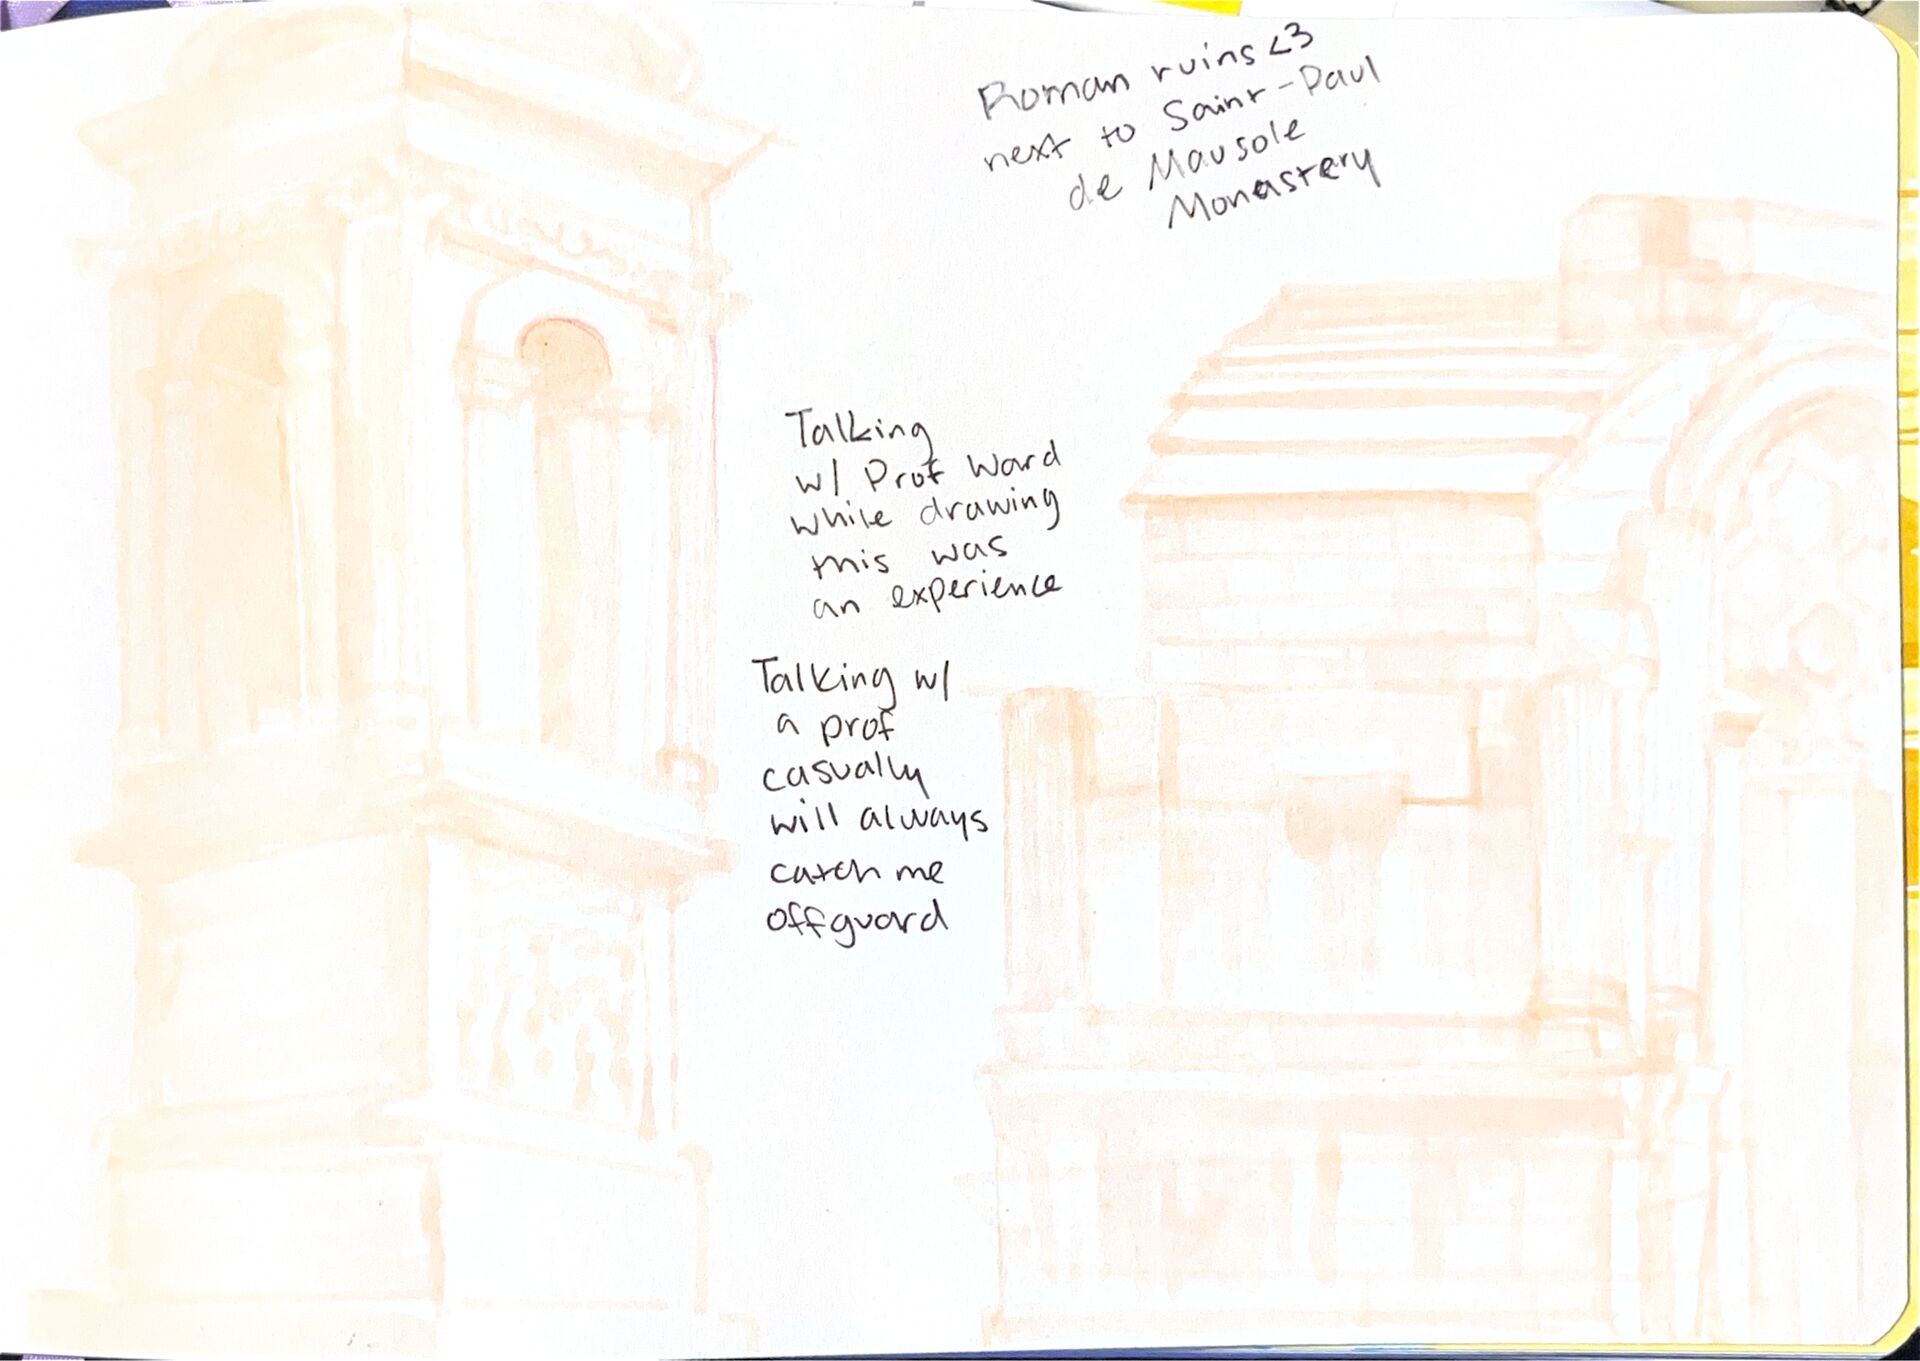 Roman ruins <3
next to Saint-Paul
de Mausole
Monastery
Talking
w/ Prof Ward
while drawing
this was
an experience
Talking w/
a prof
casually
will always
catch me
offguard